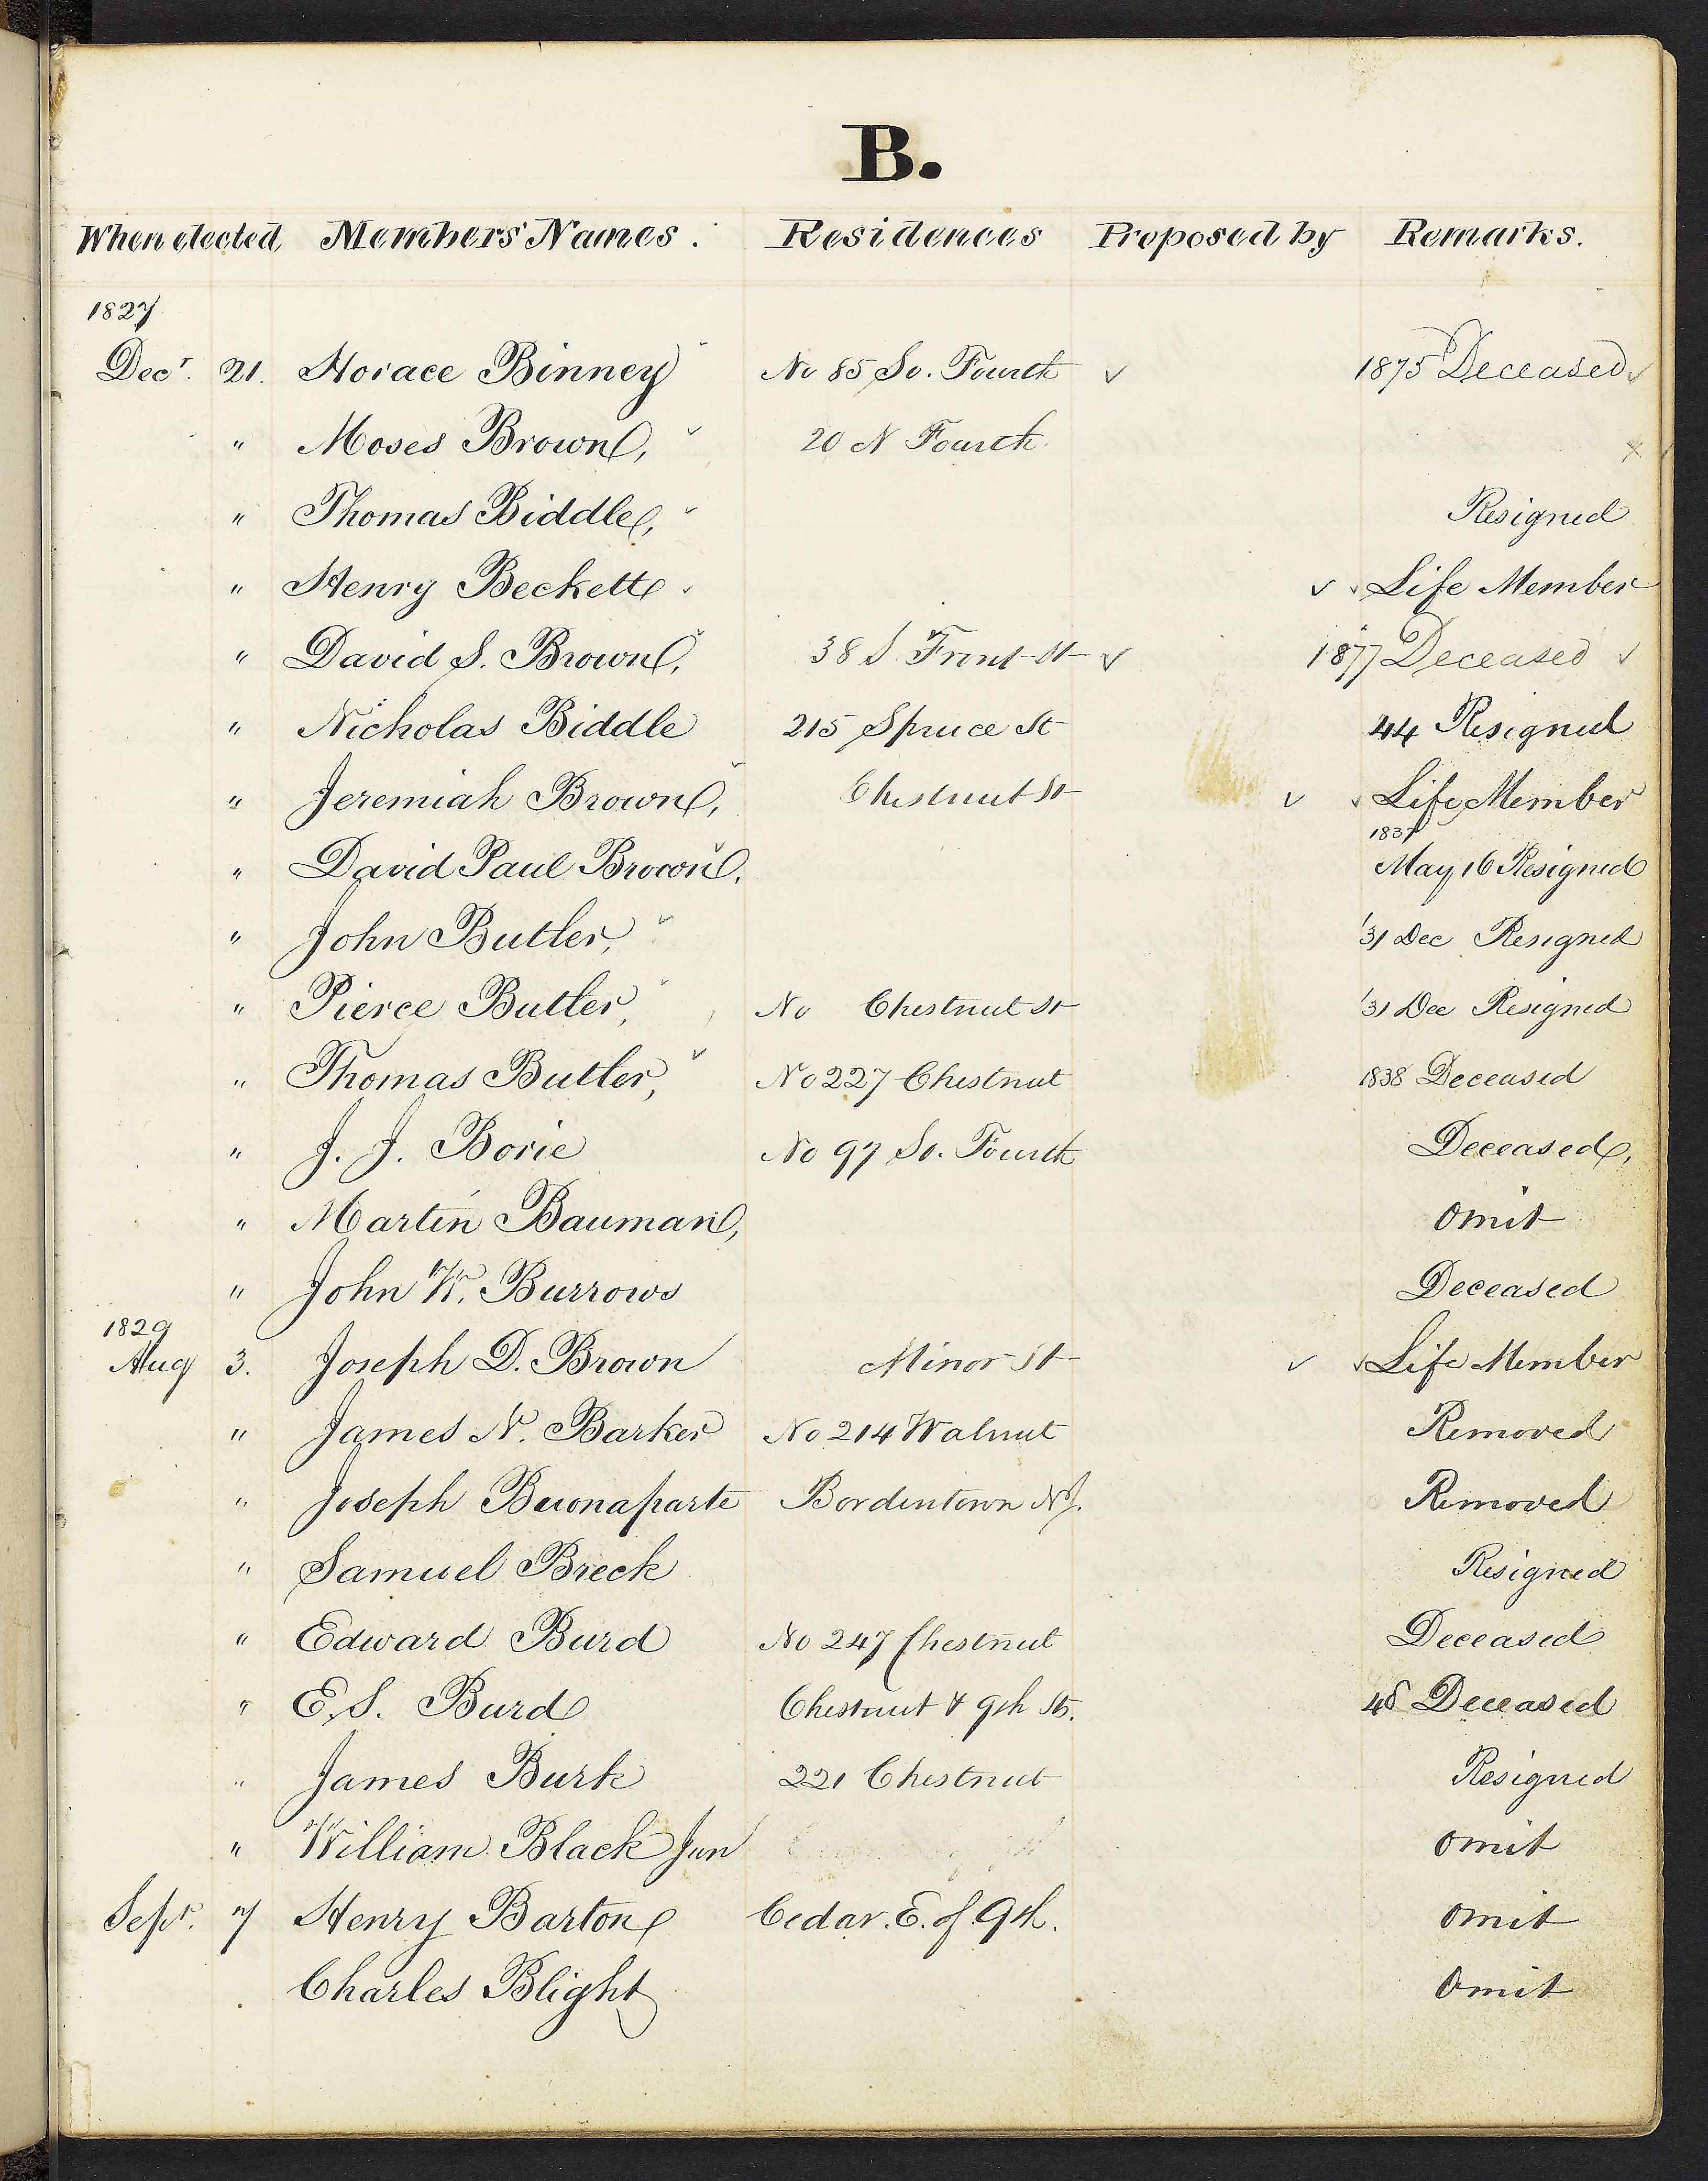 B.
When elected, Members' Names. Residences Proposed by Remarks.
1827
Decr. 21. Horace Binney No 85 So. Fourth ✓ 1875 Deceased ✓
" Moses Brown, ✓ 20 N Fourth x
" Thomas Biddle, ✓ Resigned
" Henry Beckett ✓ ✓ ✓ Life Member
" David S. Brown, ✓ 38 S. Front St ✓ 1877 Deceased ✓
" Nicholas Biddle 215 Spruce St 44 Resigned
" Jeremiah Brown, ✓ Chestnut St ✓ ✓ Life Member
1837
" David Paul Brown, ✓ May 16 Resigned
" John Butler, ✓ '31 Dec Resigned
" Pierce Butler, ✓ No Chestnut St '31 Dec Resigned
" Thomas Butler, ✓ No 227 Chestnut 1838 Deceased
" J. J. Borie No 97 So. Fourth Deceased,
" Martin Bauman, omit
" John W. Burrows Deceased
1829
Aug 3. Joseph D. Brown Minor St ✓ ✓ Life Member
" James N. Barker No 214 Walnut Removed
" Joseph Buonaparte Bordentown NJ. Removed
" Samuel Breck Resigned
" Edward Burd No 247 Chestnut Deceased
" E. S. Burd Chestnut & 9th Sts. 48 Deceased
" James Burk 221 Chestnut Resigned
" William Black Jun omit
Sepr. 7 Henry Barton Cedar. E. of 9th. omit
Charles Blight Omit